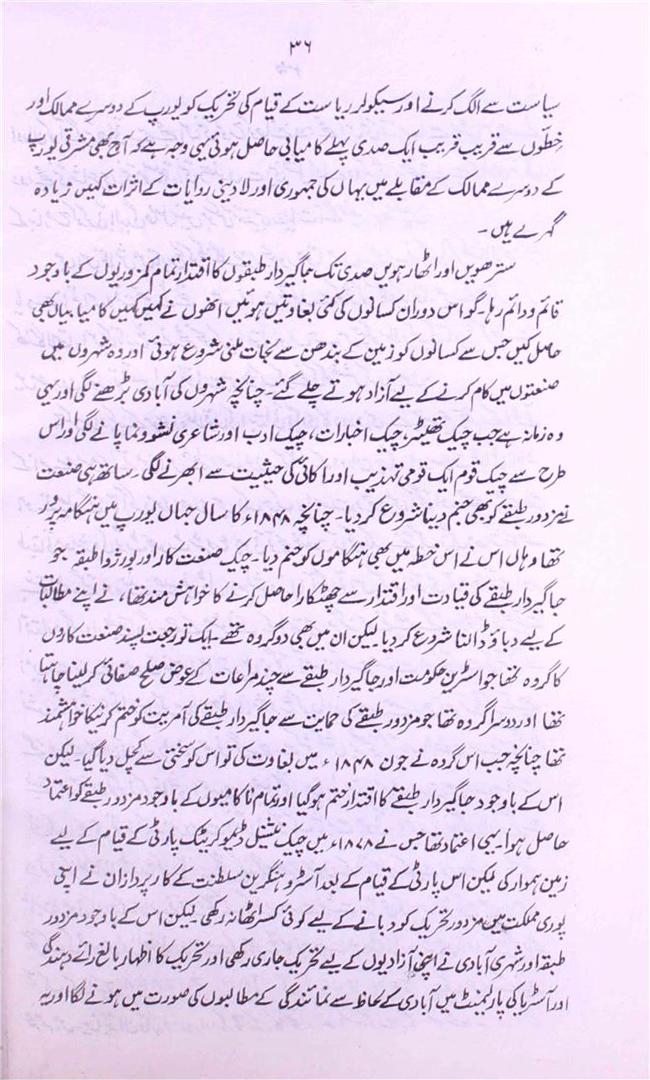 ۳۶
سیاست سے الگ کرنے اور سیکولر ریاست کے قیام کی تحریک کو یورپ کے دوسرے ممالک اور
خطوں سے قریب قریب ایک صدی پہلے کامیابی حاصل ہوئی یہی وجہ ہے کہ آج بھی مشرقی یورپ
کے دوسرے ممالک کے مقابلے میں یہاں کی جمہوری اور لادینی روایات کے اثرات کہیں زیادہ
گہرے ہیں۔
سترھویں اور اٹھارہویں صدی تک جاگیردار طبقوں کا اقتدار تمام کمزوریوں کے باوجود
قائم و دائم رہا۔ گو اس دوران کسانوں کی کئی بغاوتیں ہوئیں انھوں نے کہیں کہیں کامیابیاں بھی
حاصل کیں جس سے کسانوں کو زمین کے بندھن سے نجات ملنی شروع ہوئی اور وہ شہروں میں
صنعتوں میں کام کرنے کے لیے آزاد ہوتے چلے گئے۔ چنانچہ شہروں کی آبادی بڑھنے لگی اور یہی
وہ زمانہ ہے جب چیک تھیٹر، چیک اخبارات، چیک ادب اور شاعری نشوونما پانے لگی اور اس
طرح سے چیک قوم ایک قومی تہذیب اور اکائی کی حیثیت سے ابھرنے لگی۔ ساتھ ہی صنعت
نے مزدور طبقے کو بھی جنم دینا شروع کردیا۔ چنانچہ ۱۸۴۸ء کا سال جہاں یورپ میں ہنگامہ پرور
تھا وہاں اس نے اس خطہ میں بھی ہنگاموں کو جنم دیا۔ چیک صنعت کار اور بورژوا طبقہ جو
جاگیردار طبقے کی قیادت اور اقتدار سے چھٹکارا حاصل کرنے کا خواہش مند تھا، نے اپنے مطالبات
کے لیے دباؤ ڈالنا شروع کردیا۔ لیکن ان میں بھی دو گروہ تھے۔ ایک تو رجعت پسند صنعت کاروں
کا گروہ تھا جو آسٹرین حکومت اور جاگیردار طبقے سے چند مراعات کے عوض صلح صفائی کرلینا چاہتا
تھا اور دوسرا گروہ تھا جو مزدور طبقے کی حمایت سے جاگیردار طبقے کی آمریت کو ختم کرنیکا خواہشمند
تھا چنانچہ جب اس گروہ نے جون ۱۸۴۸ء میں بغاوت کی تو اس کو سختی سے کچل دیا گیا۔ لیکن
اس کے باوجود جاگیردار طبقے کا اقتدار ختم ہوگیا اور تمام ناکامیوں کے باوجود مزدور طبقے کو اعتماد
حاصل ہوا۔ یہی اعتماد تھا جس نے ۱۸۷۸ء میں چیک نیشنل ڈیموکریٹک پارٹی کے قیام کے لیے
زمین ہموار کی لیکن اس پارٹی کے قیام کے بعد آسٹرو ہنگرین سلطنت کے کارپردازان نے اپنی
پوری مملکت میں مزدور تحریک کو دبانے کے لیے کوئی کسر اٹھا نہ رکھی۔ لیکن اس کے باوجود مزدور
طبقہ اور شہری آبادی نے اپنی آزادیوں کے لیے تحریک جاری رکھی اور تحریک کا اظہار بالغ رائے دہندگی
اور آسٹریا کی پارلیمنٹ میں آبادی کے لحاظ سے نمائندگی کے مطالبوں کی صورت میں ہونے لگا اور یہ